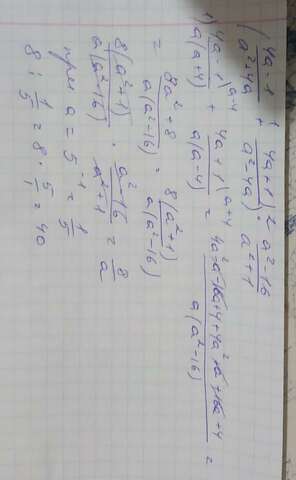 (4a-1/a²+4a +¹ 4a+1/a²-4a) ·² a²-16/a²+1
1) 4a-1\ᵃ⁻⁴/a(a+4) + 4a+1\ᵃ⁺⁴/a(a-4) = 4a²-a-16a+4+4a²+a+16a+4/a(a²-16) =
= 8a²+8/a(a²-16) = 8(a²+1)/a(a²-16)
8(a²+1)/a(a²-16) · a²-16/a²+1 = 8/a
при a = 5⁻¹ = 1/5
8 : 1/5 = 8 · 5/1 = 40